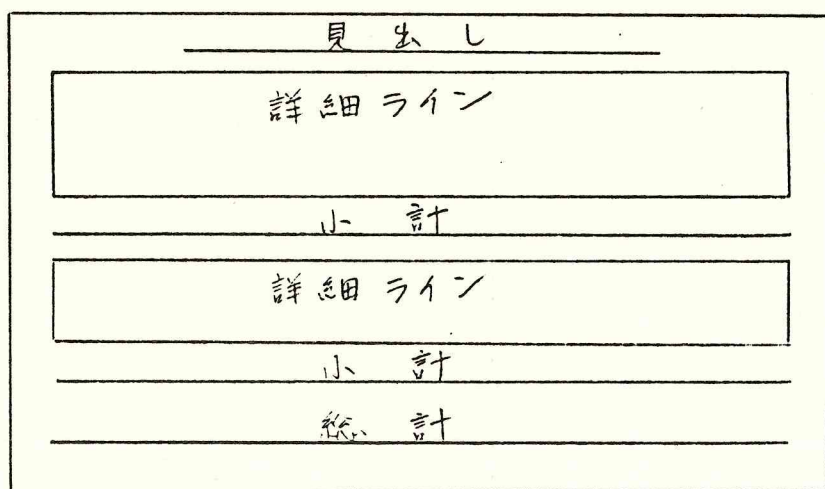 見出し
詳細ライン
小計
詳細ライン
小計
総計